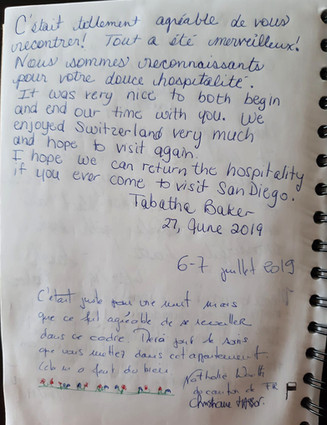 C'était tellement agréable de vous
recontrer! Tout a été merveilleux!
Nous sommes reconnaissants
pour votre douce hospitalité.
It was very nice to both begin
and end our time with you. We
enjoyed Switzerland very much
and hope to visit again.
I hope we can return the hospitality
if you ever come to visit San Diego.
Tabatha Baker
27, June 2019
6-7 juillet 2019
C'était juste pour une nuit mais
que ce fut agréable de se réveiller
dans ce cadre. Merci pour le soin
que vous mettez dans cet appartement
Cela m'a fait du bien
Nathalie
du canton de FR
Christiane